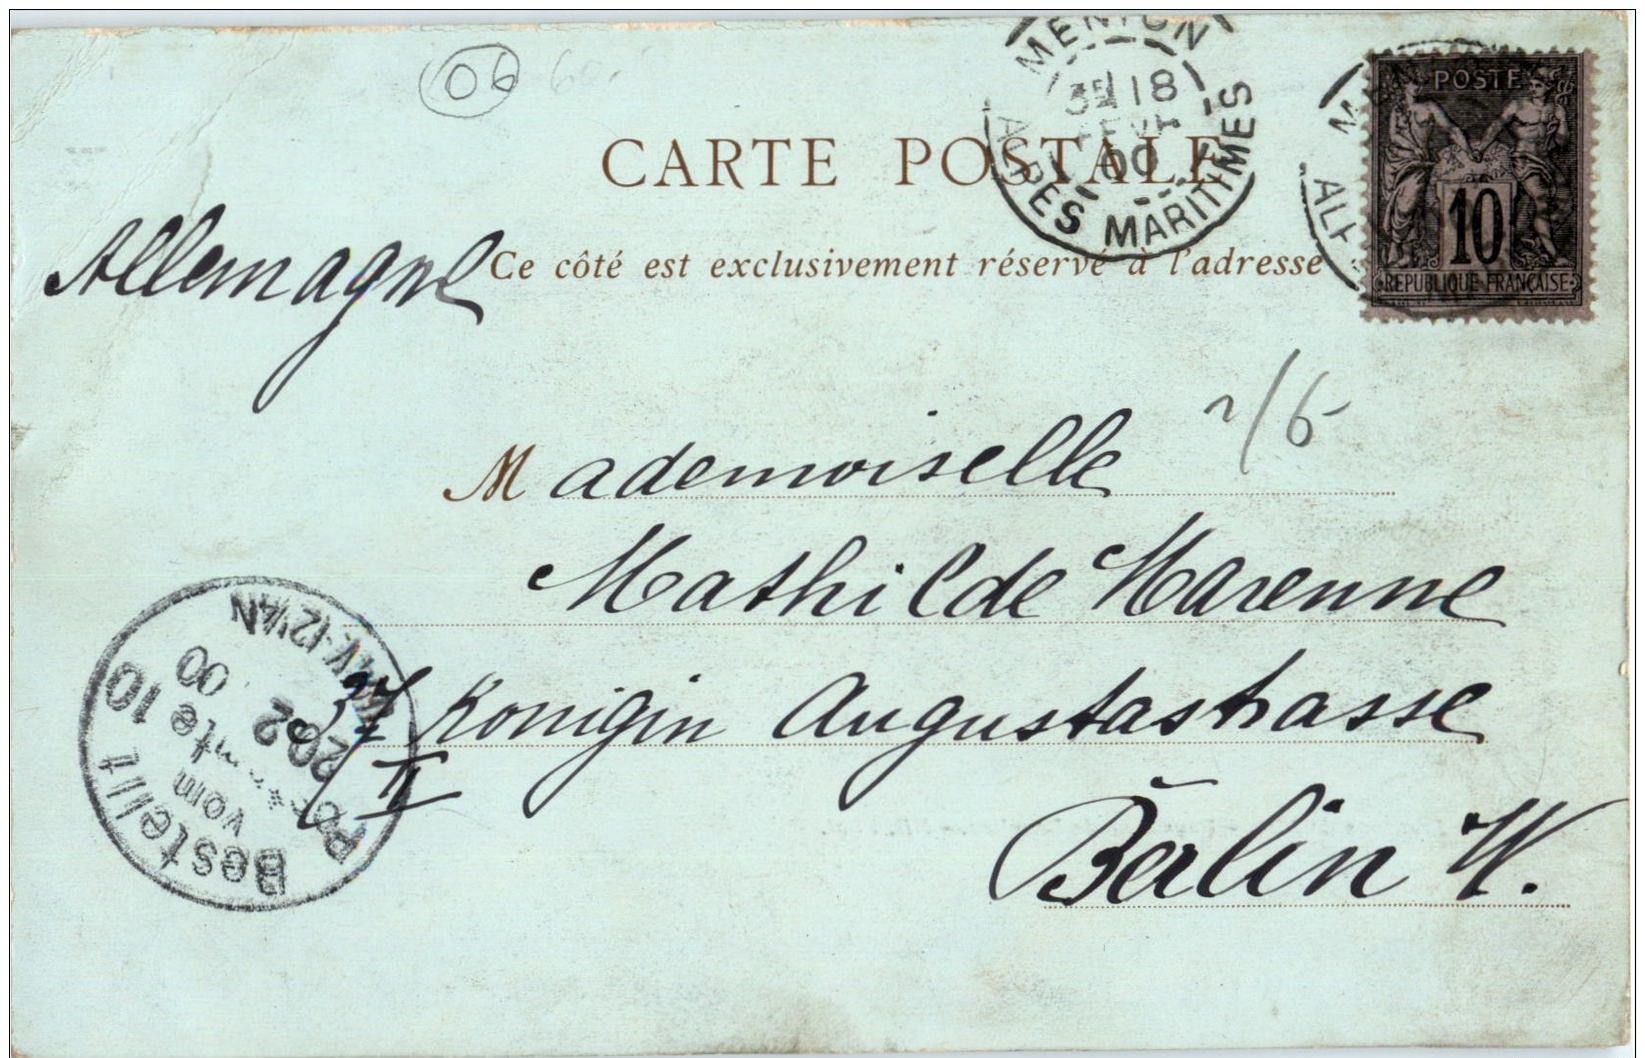 06
MENTON
3E 18
00
ALPES MARITIMES
POSTE
10
REPUBLIQUE FRANÇAISE
CARTE POSTALE
Ce côté est exclusivement réservé à l'adresse
Allemagne
2/6
Mademoiselle
Mathilde Marenne
37 Konigin Augustastrasse
II
Berlin W.
Bestellt
vom
Postamte 10
20 2 00
12¼N